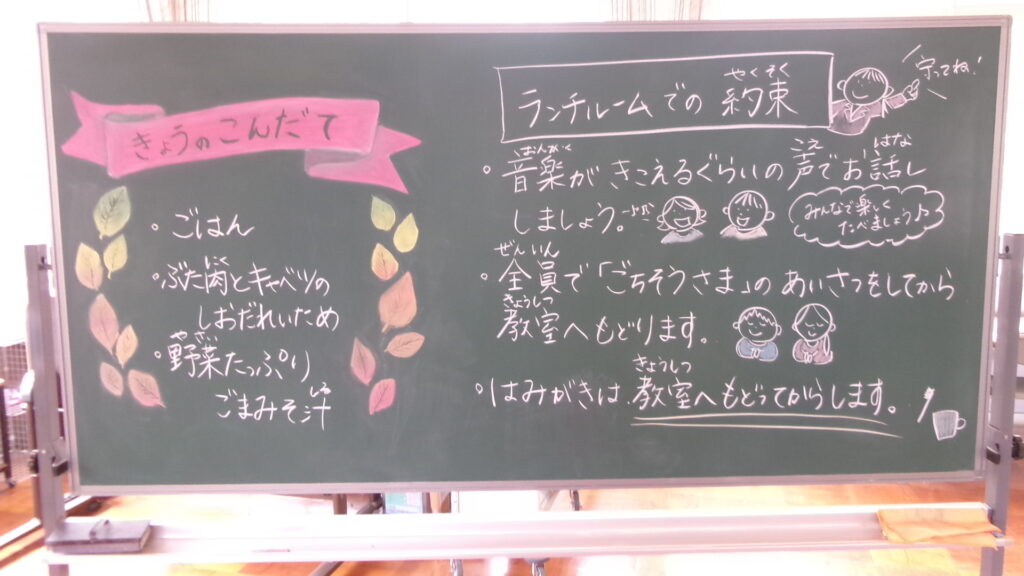 きょうのこんだて
・ごはん
・ぶた肉とキャベツの
にく
しおだれいため
・野菜たっぷり
やさい
ごまみそ汁
しる
ランチルームでの約束
やくそく
守ってね!
・音楽がきこえるぐらいの声でお話し
おんがく
こえ
はな
しましょう。
みんなで楽しく
たべましょう♪
・全員で「ごちそうさま」のあいさつをしてから
ぜんいん
教室へもどります。
きょうしつ
・はみがきは教室へもどってからします。
きょうしつ